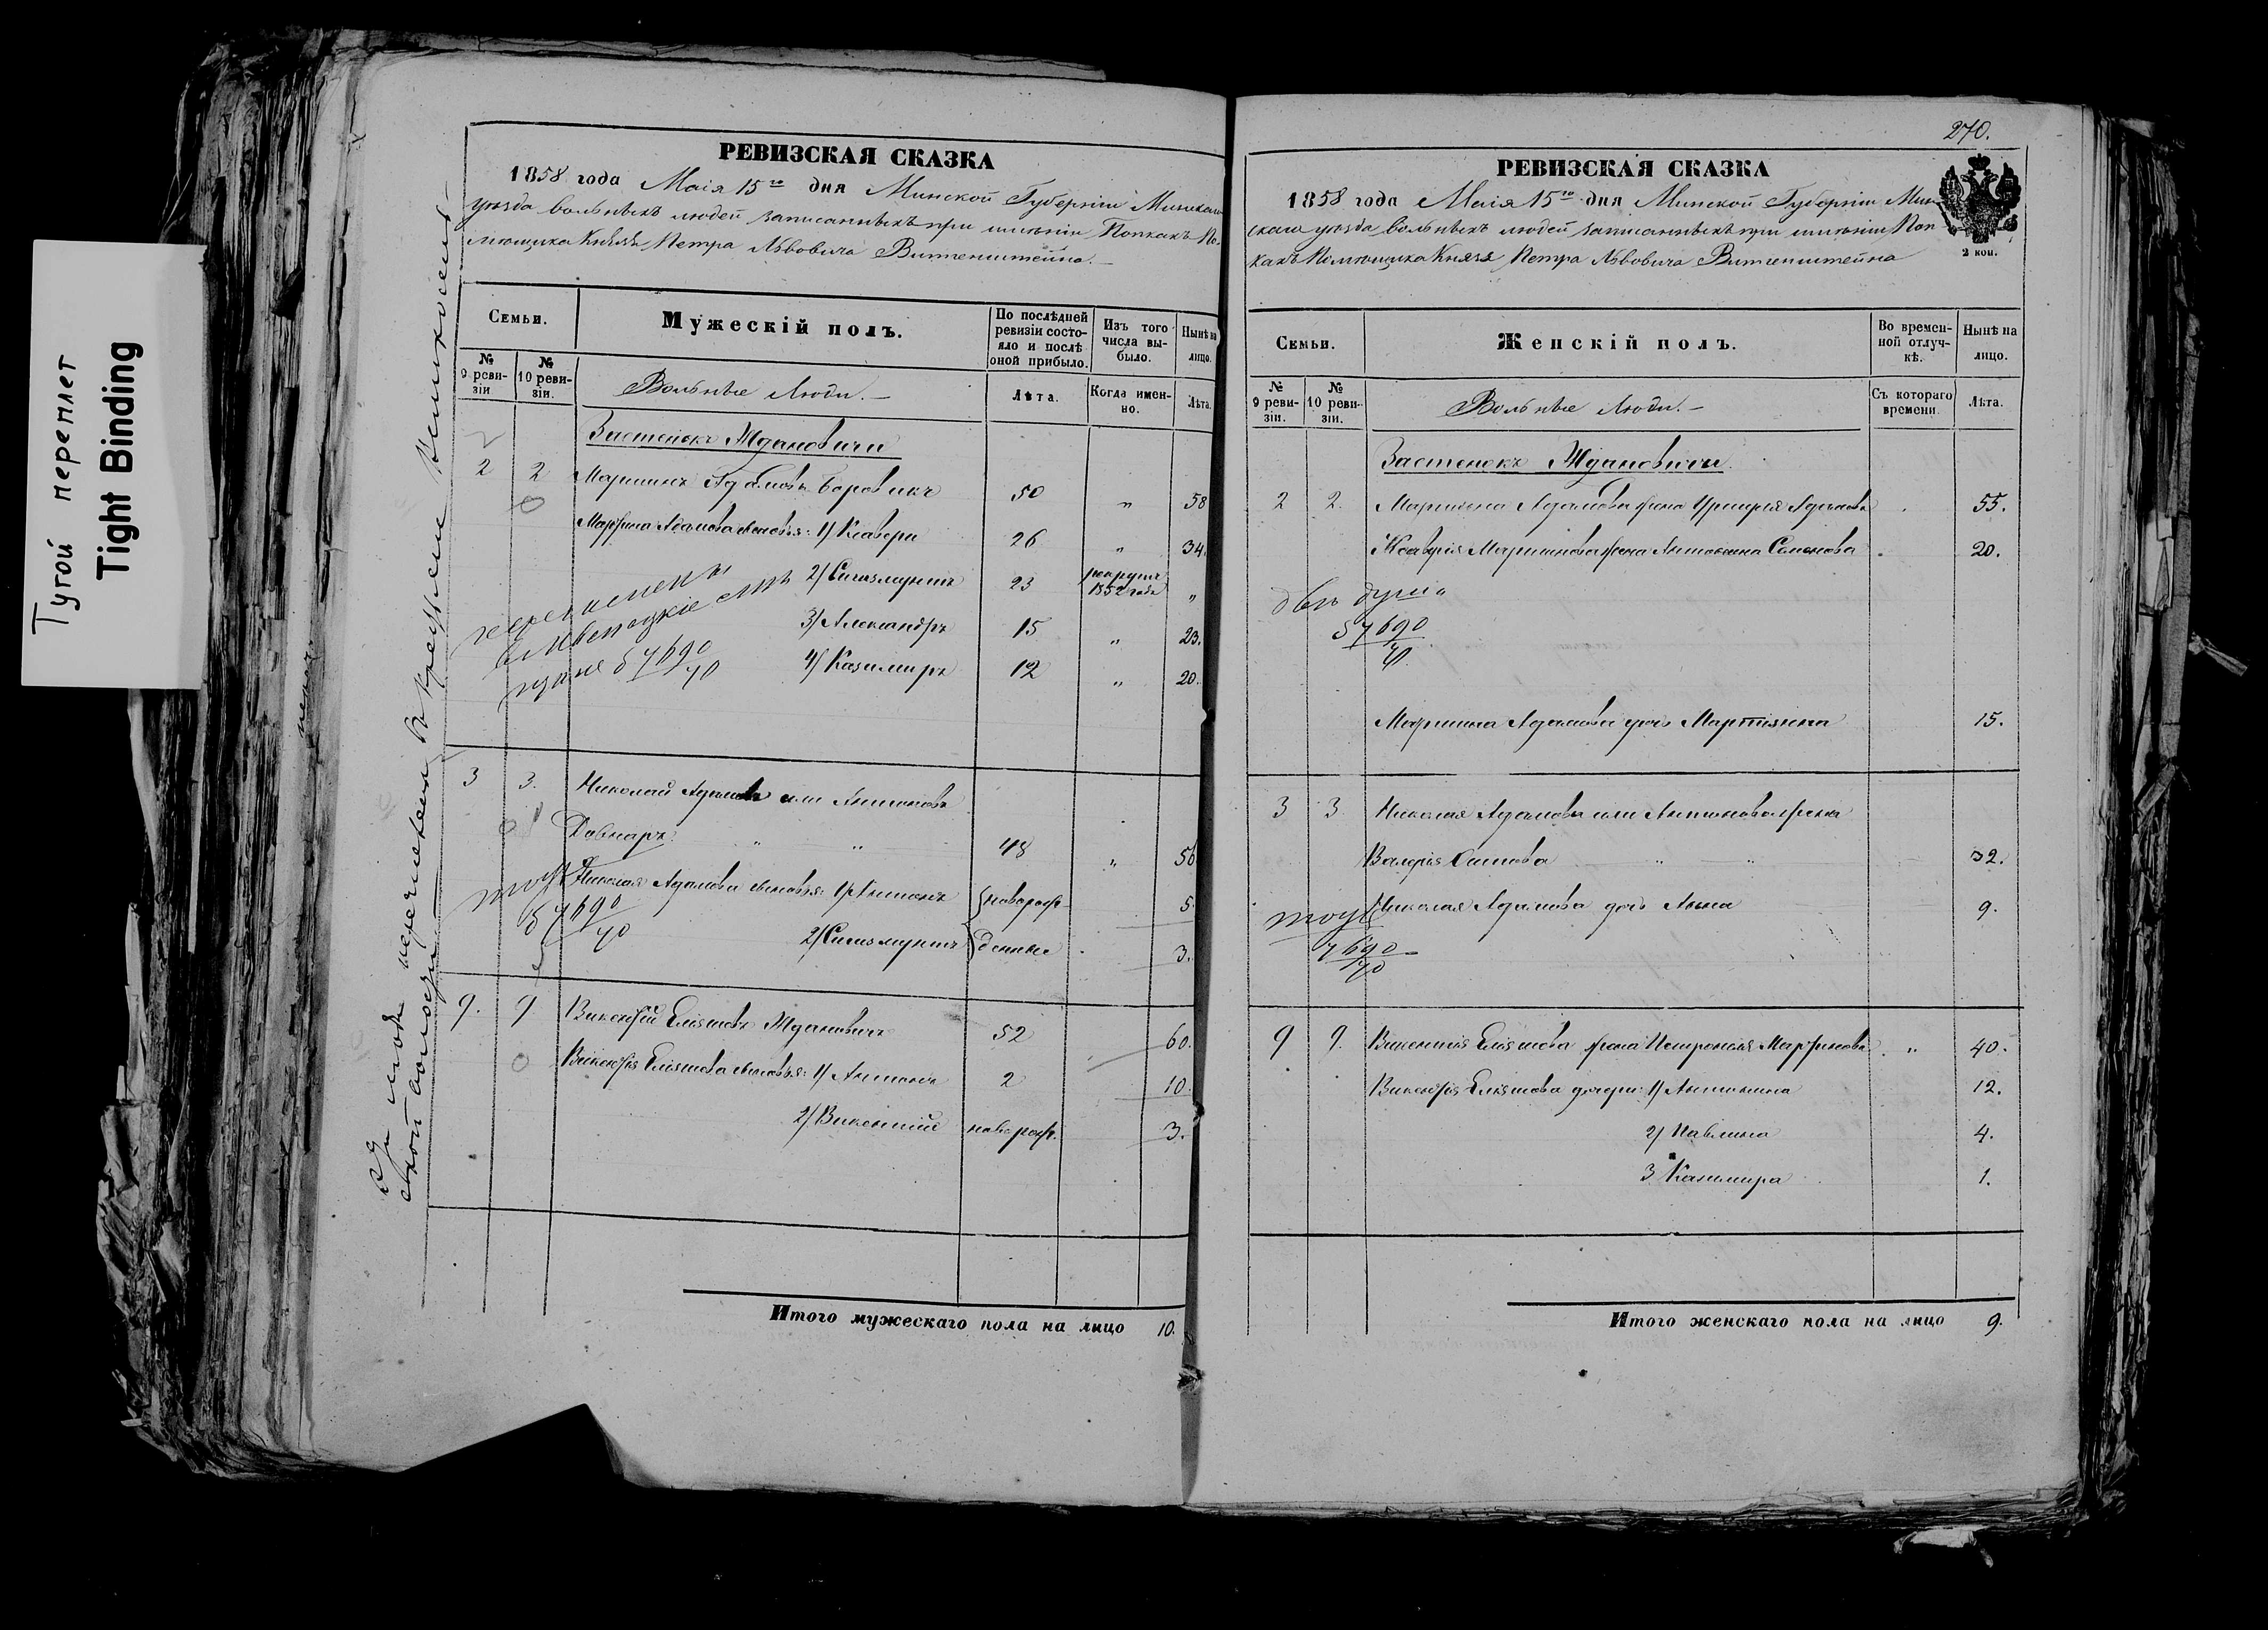 Тугой переплет
Tight Binding
РЕВИЗСКАЯ СКАЗКА
1858 года Маія 15го дня Минской Губерніи Минскаго
уѣзда вольныхъ людей записанныхъ при имѣніи Попкахъ По-
мѣщика Князя Петра Львовича Витгенштейна.
Семьи.
Мужескій полъ.
По послѣдней ревизіи состо-яло и послѣ оной прибыло.
Изъ того числа вы-было.
Нынѣ на лицо.
№ 9 реви-зіи
№ 10 реви-зіи.
Вольные Люди.
Лѣта.
Когда имен-но.
Лѣта.
Застенокъ Ждановичи
2 2 Мартинъ Адамовъ Боровикъ 50 " 58
Мартина Адамова сыновья: 1) Ксаверій 26 " 34.
2) Сигизмунтъ 23 рекрутъ 1852 года "
3) Александръ 15 " 23.
4) Казимиръ 12 " 20.
перечислены
7690
70
3 3. Николай Адамовъ или Антоновъ
Довнаръ. " " 48 " 56
Николая Адамова сыновья: 1) Антонъ новорож- 5.
2) Сигизмунтъ денные 3.
тоже
7690
70
9. 9 Викентій Еліяшовъ Ждановичъ 52 60.
Викентія Еліяшова сыновья: 1) Антонъ 2 10.
2) Викентій новорож. 3.
Итого мужескаго пола на лицо 10.
сіи люди перечислены въ крестьяне
270.
РЕВИЗСКАЯ СКАЗКА
1858 года Маія 15го дня Минской Губерніи Мин-
скаго уѣзда вольныхъ людей записанныхъ при имѣніи Поп-
кахъ Помѣщика Князя Петра Львовича Витгенштейна
2 коп.
Семьи.
Женскій полъ.
Во времен-ной отлуч-кѣ.
Нынѣ на лицо.
№ 9 реви-зіи.
№ 10 реви-зіи.
Вольные Люди.
Съ котораго времени.
Лѣта.
Застенокъ Ждановичи.
2 2. Мартина Адамова жена Адамова 55.
Ксаверія Мартинова жена Антонина Семенова 20.
двѣ души
57690
70
Мартина Адамова дочь Мартіянна 15.
3 3 Николая Адамова или Антонова жена
Валерія Осипова " " 32.
Николая Адамова дочь Анна 9.
тоже
7690
70
9 9. Викентія Еліяшова жена Петронеля Мартинова " 40.
Викентія Еліяшова дочери: 1) Антонина 12.
2) Павлина 4.
3 Казимира 1.
Итого женскаго пола на лицо 9.